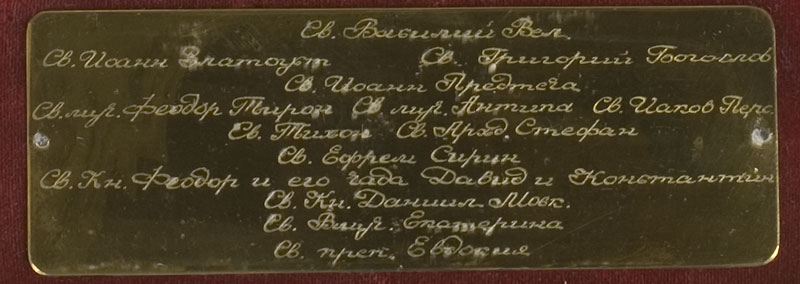 Св. Василий Вел.
Св. Иоанн Златоуст Св. Григорий Богослов
Св. Иоанн Предтеча
Св. муч. Феодор Тирон Св муч. Антипа Св. Иаков Перс.
Св. Тихон Св. Архд. Стефан
Св. Ефрем Сирин
Св. Кн. Феодор и его чада Давид и Константин
Св. Кн. Даниил Моск.
Св. Влмуч. Екатерина
Св. преп. Евдокия